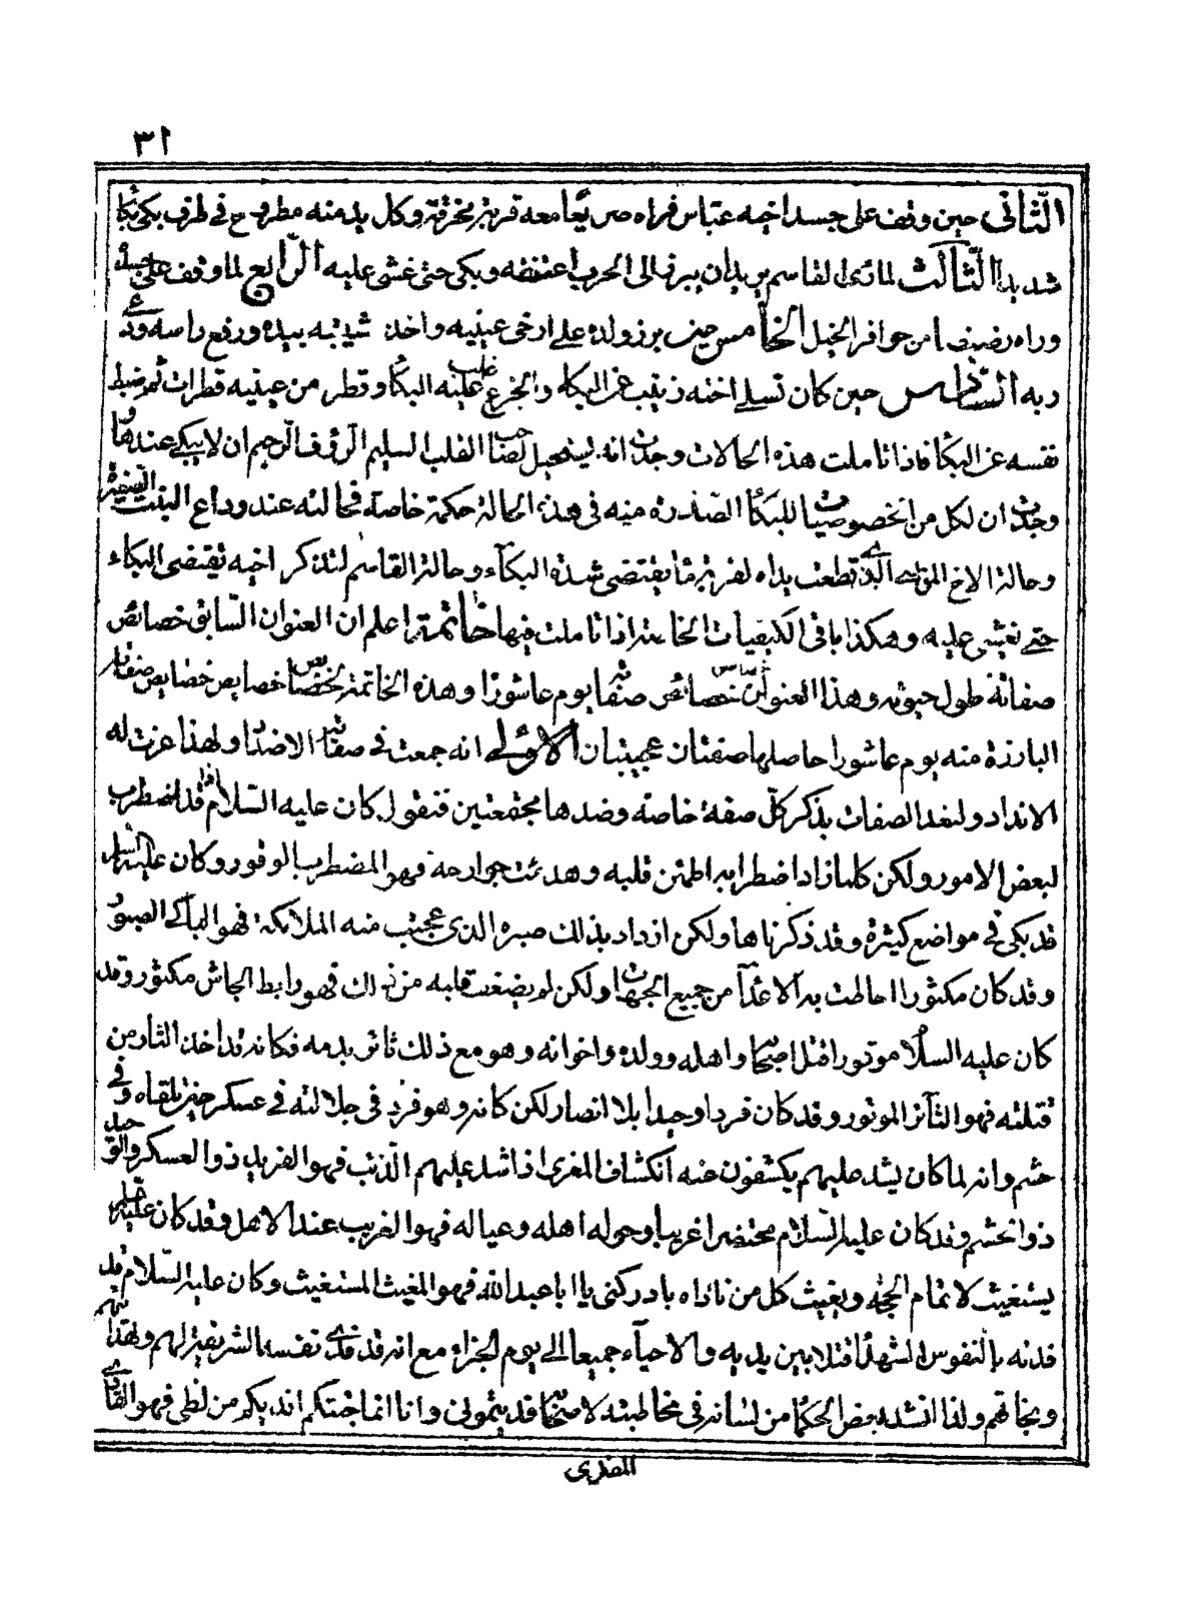 ٣١
الثاني حين وقف على جسد اخيه عباس فراه صريعا معه قربة مخرقة وكل يد منه مطروح في طرف بكى بكاء
شديدا الثالث لما رى القاسم يريد ان يبرز الى الحرب اعتنقه وبكى حتى غشى عليه الرابع لما وقف على جسده
وراه رضيضا من حوافر الخيل الخامس حين برز ولده علي ارخى عينيه واخذ شيبته بيده ورفع راسه ودعى
ربه السادس حين كان تسلي اخته زينب عن البكاء والجزع غلب عليه البكاء وقطر من عينيه قطرات ثم ضبط
نفسه عن البكاء فاذا تاملت هذه الحالات وجدت انه يستحيل لصاحب القلب السليم الرؤف الرحيم ان لا يبكي عندها و
وجدت ان لكل من الخصوصيات للبكاء الصادرة منه في هذه الحالة حكمة خاصة فحالته عند وداع البنت الصغيرة
وحالة الاخ المواسي الذي قطعت يداه لقربة ما يقتضى شدة البكاء وحالة القاسم لتذكر اخيه يقتضى البكاء
حتى يغشى عليه وهكذا باقى الكيفيات الخاصة اذا تاملت فيها خاتمة اعلم ان العنوان السابق خصائص
صفاته طول حيوته وهذا العنوان خصائص صفاته يوم عاشورا وهذه الخاتمة لخصائص خصايص خصايص صفاته
البارزة منه يوم عاشورا حاصلها صفتان عجيبتان الاولى انه جمعت في صفاته الاضداد ولهذا عزت له
الانداد ولنعد الصفات بذكر كل صفة خاصة وضدها مجتمعتين فنقول كان عليه السلام قد اضطرب
لبعض الامور ولكن كلما زاد اضطرابه اطمئن قلبه وهدئت جوارحه فهو المضطرب الوقور وكان عليه السلام
قد بكى في مواضع كثيرة وقد ذكرناها ولكن ازداد بذلك صبره الذى عجبت منه الملائكة فهو الباكي الصبور
وقد كان مكثورا احاطت به الاعداء من جميع الجهات ولكن لم يضعف قلبه من ذلك فهو رابط الجاش مكثور وقد
كان عليه السلام موتورا قتل اصحابه واهله وولده واخوانه وهو مع ذلك ثائر بدمه فكانه قد اخذ الثار من
قتلته فهو الثائر الموتور وقد كان فردا وحيدا بلا انصار لكن كانه وهو فرد في جلالته في عسكر حين تلقاه وفي
حشم وانه لما كان يشد عليهم يكشفون عنه انكشاف المعزى اذا شد عليهم الذئب فهو الفريد ذوالعسكر والوحيد
ذو الحشم وقد كان عليه السلام محتضرا غريبا وحوله اهله وعياله فهو الغريب عند الاهل وقد كان عليه السلام
يستغيث لاتمام الحجة ويغيث كل من ناداه بادركني يا ابا عبد الله فهو المغيث المستغيث وكان عليه السلام قد
فدته بالنفوس الشهداء قتلا بين يديه والاحياء جميعا الى يوم الجزاء مع انه قد فدى نفسه الشريفة لهم ولهدايتهم
ونجاتهم ولذا انشد بعض الحكماء من لسانه في مخاطبته لاصحابه قد يتمونى وانا انما اجتكم افديكم من لظى فهو الفادي
المفدى